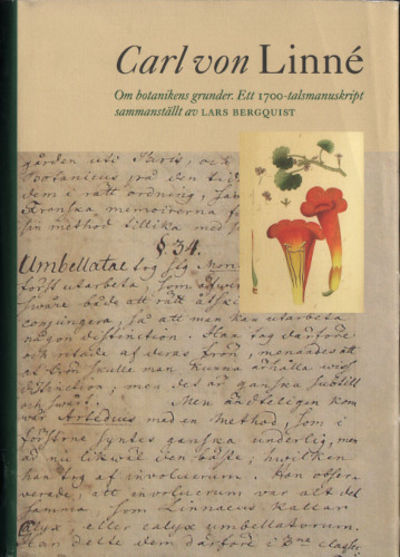 Carl von Linné
Om botanikens grunder. Ett 1700-talsmanuskript
sammanställt av LARS BERGQUIST
gården uti Paris, och
Botanicus på den tid
dem i rätt ordning,
memoirerna
sin method tillika med
§. 34.
Umbellatae tog sig
först utarbeta, som
swåre både att rätt
conjungera, så att man kan utarbeta
någon distinction. Han tog därföre
och ritade af deras frön, menandes att
at Frön skulle man kunna ärhålla wiss
distinction; men det är ganska subtilt
och swårt. Men ändteligen kom
wår Artedius med en Method, som i
förstne syntes ganska underlig, men
äd nu likwäl den bäste; hwilken
han tog af involucrum. Han obser-
verade, att involucrum war alt det
samma, som Linnaeus kallar
calyx eller calyx umbellatorum.
Han delte dem därföre i 3ne classer